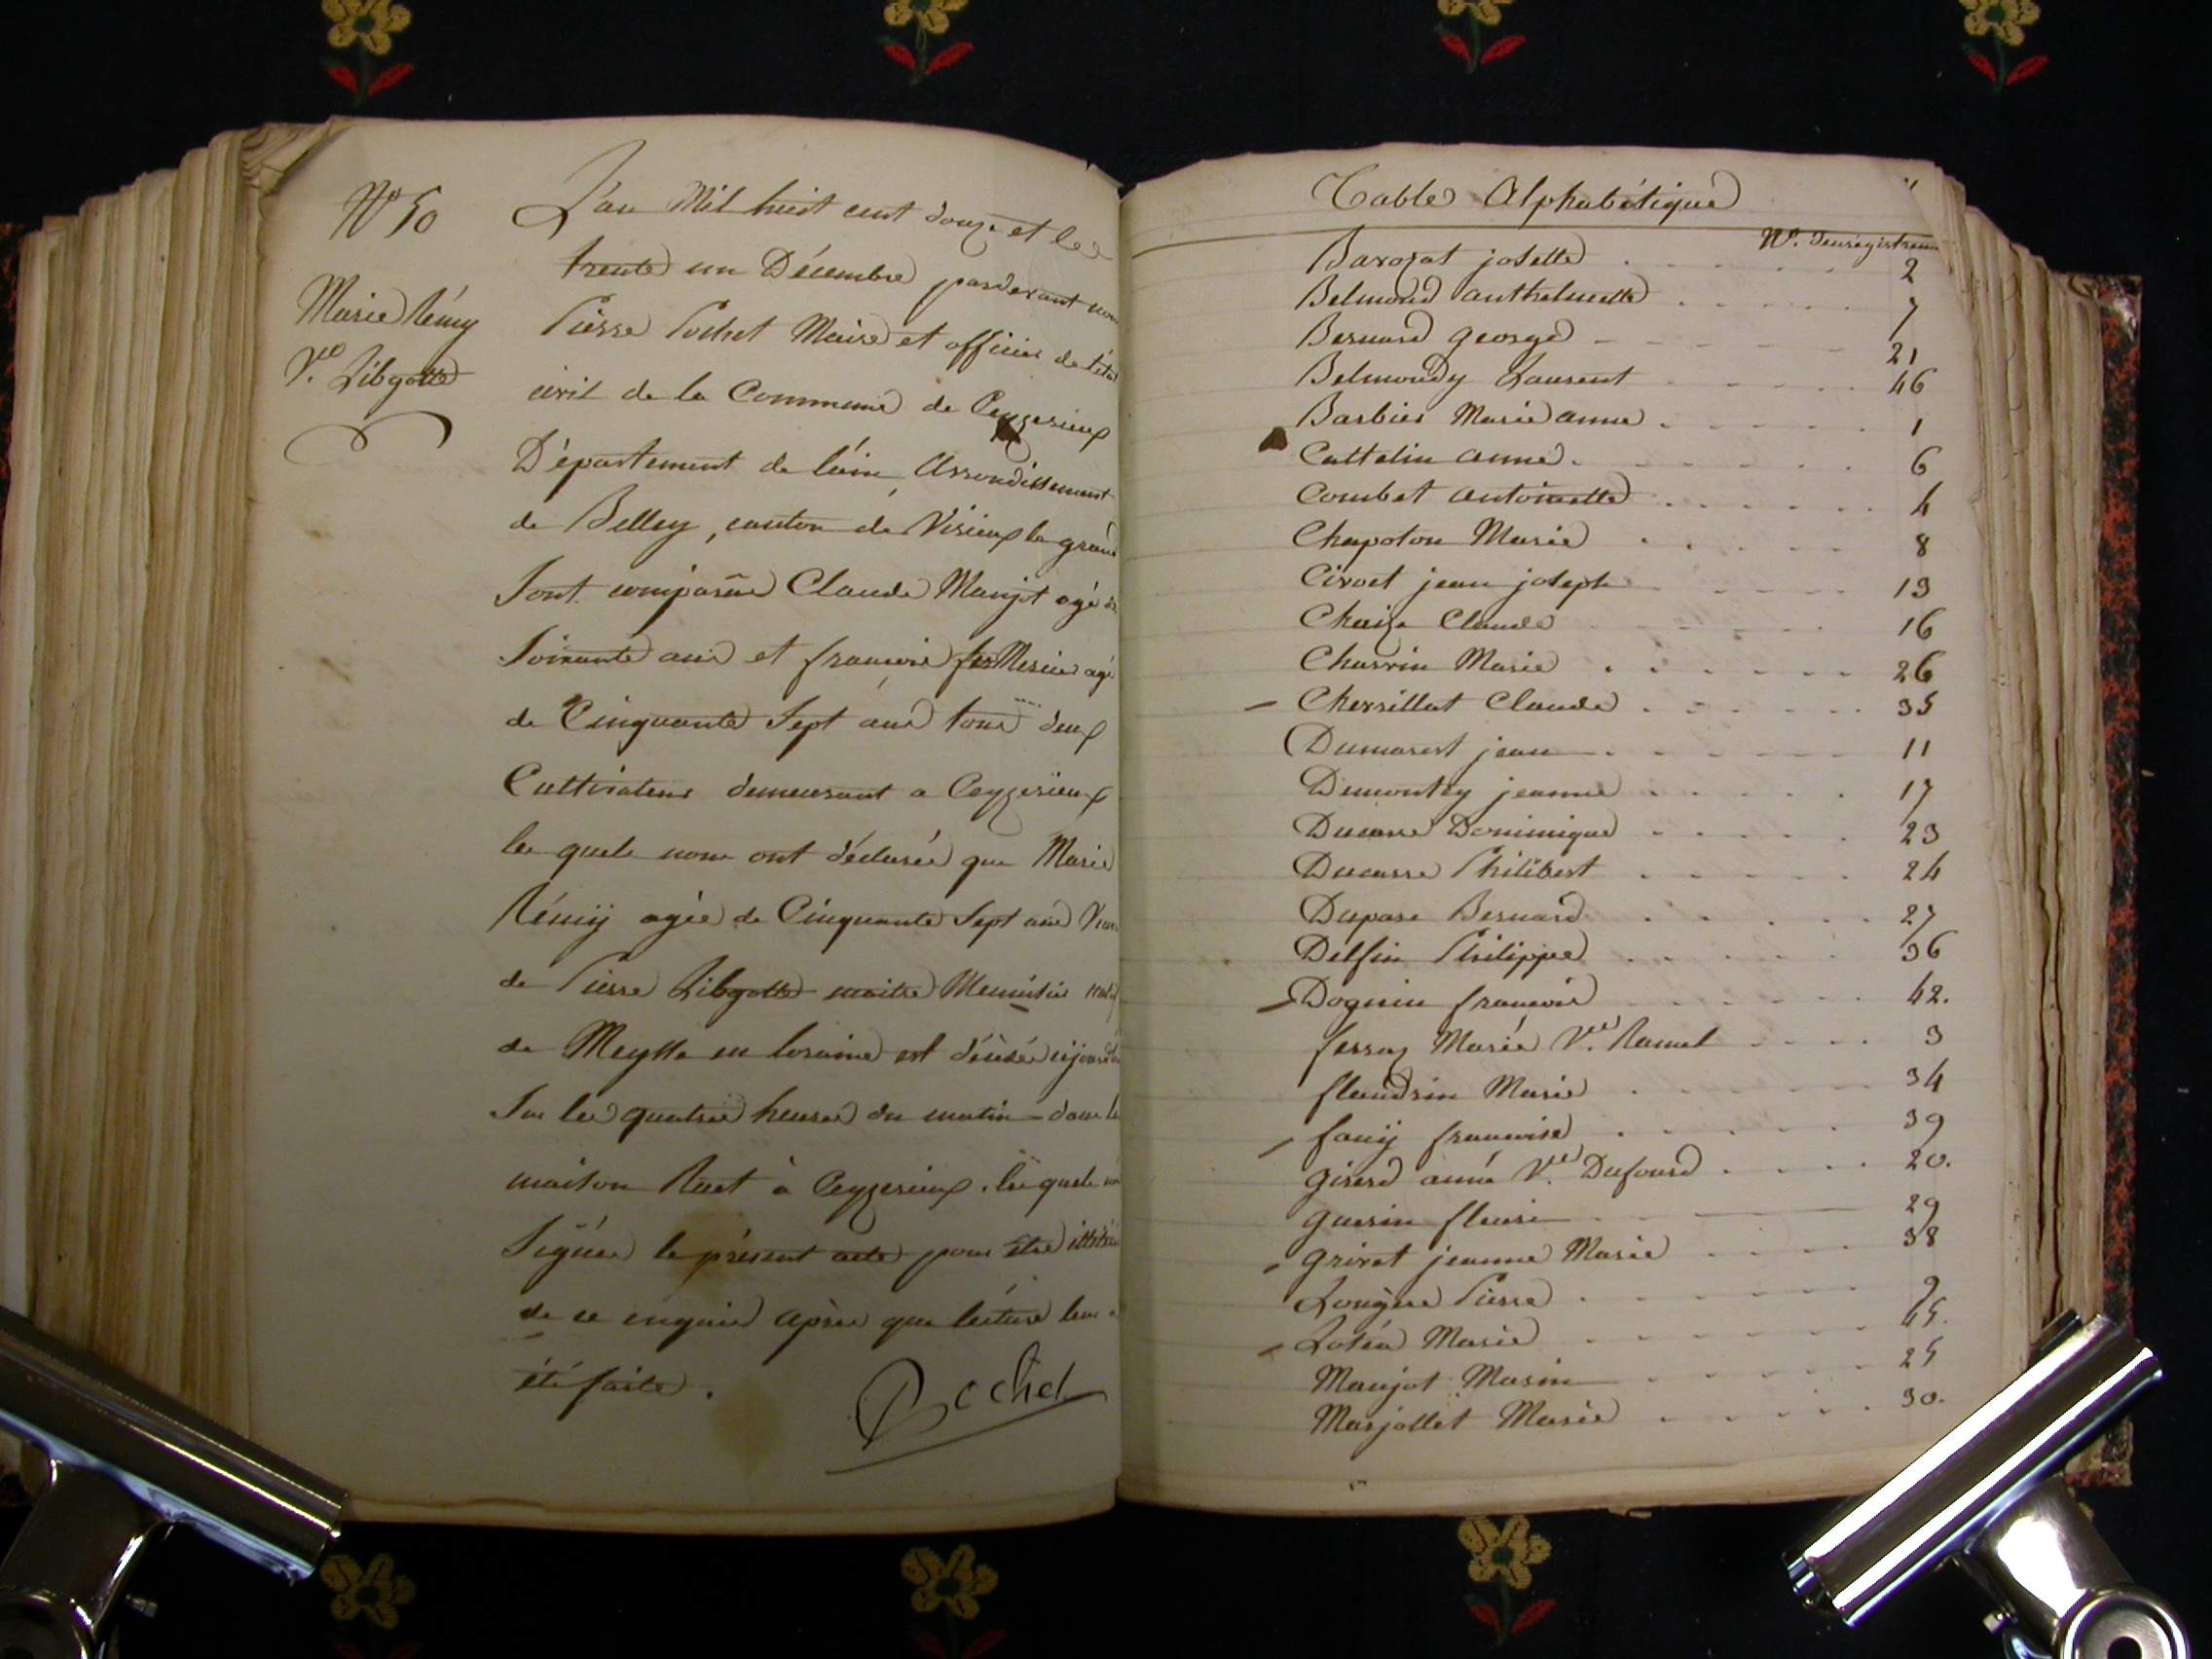 N° 50
Marie Rémy
V.e Libgotte
L'an Mil huit cent douze et le
trente un Décembre pardevant nous
Pierre Pochet Maire et officier de l'état
civil de la Commune de Ceyzerieux
Département de l'ain, Arrondissement
de Belley, canton de Virieux le grand
Sont comparus Claude Manjot agé de
Soixante ans et francois agé
de Cinquante Sept ans tous deux
Cultivateurs demeurant a Ceyzerieux
les quels nous ont déclarés que Marie
Rémy agée de Cinquante Sept ans
de Pierre Libgotte maitre Menuisier
de en loraine est décédée
Sur les quatres heures du matin dans la
maison Ruet à Ceyzerieux. les quels
Signés le présent acte pour être
de ce enquis après que lecture leur a
été faite.
Pochet
Table Alphabétique
N°. d'enregistrement
Barozat josette 2
Belmond anthelmette 7
Bernard george 21
Belmondy Laurent 46
Barbier Marie anne 1
Cattelin anne 6
Combet antoinette 4
Chapoton Marie 8
Civoct jean joseph 13
Chaize Claude 16
Charvin Marie 26
Chervillat Claude 35
Dumarest jean 11
Dumontey jeanne 17
Ducarre Dominique 23
Ducarre Philibert 24
Dupare Bernard 27
Delfin Philippe 36
Dognin francois 42.
ferraz Marie V.e Ramel 3
flandrin Marie 34
fany francoise 39
Girerd anne V.e Dufourd 20.
Guerin fleuri 29
Grivet jeanne Marie 38
Longère Pierre 9
Marie 45.
Manjot Marin 25
Marjollet Marie 30.